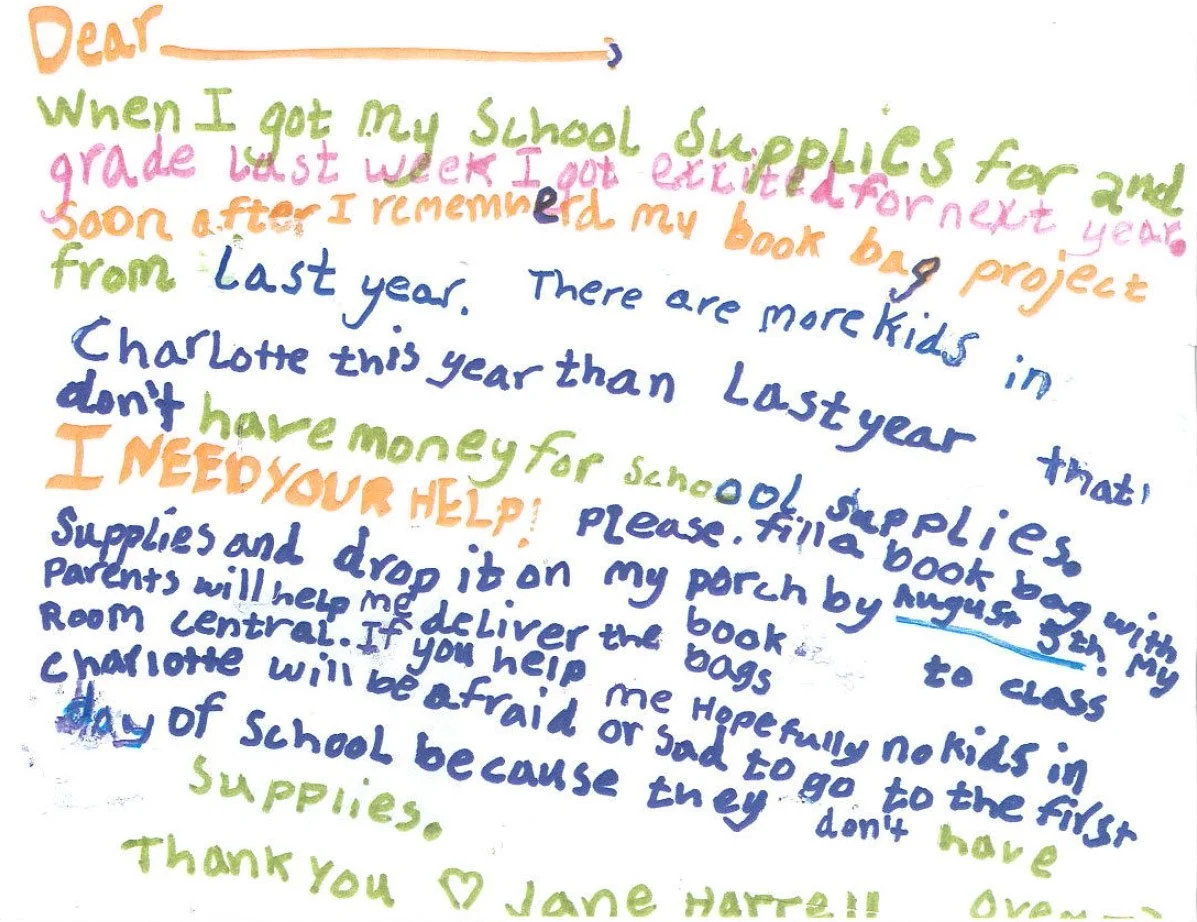 Dear ,
When I got my School Supplies for 2nd
grade last week I got excited for next year.
soon after I rememnerd my book bag project
from Last year. There are more kids in
Charlotte this year than Last year that
don't have money for school supplies.
I NEED YOUR HELP! please. fill a book bag with
Supplies and drop it on my porch by August 5th. My
parents will help me deliver the book bags to class
Room central. If you help me Hopefully no kids in
Charlotte will be afraid or sad to go to the first
day of School because they don't have
Supplies.
Thank you ♡ Jane Harrell over →